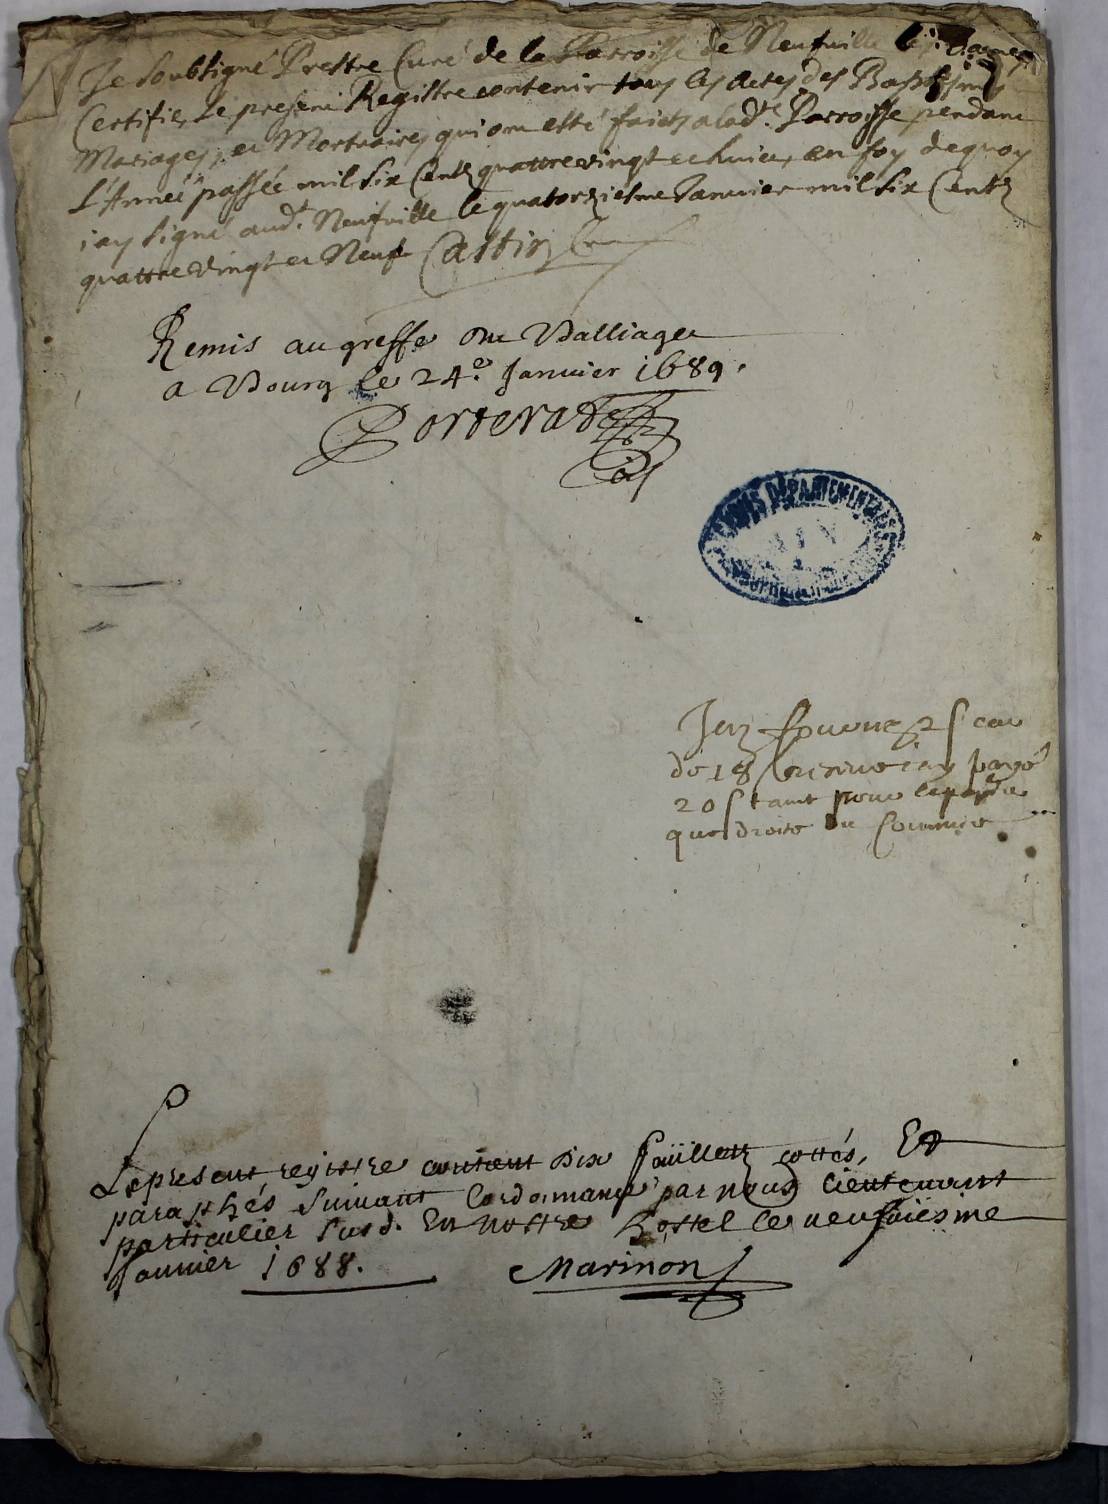 Je Soubsigné Prestre Curé de la Parroisse de Neufville les Dames
Certifie, Le present Registre contenir tous les Actes des Baptesmes
Mariages, et Mortuaires qui ont esté faicts a lad.te Parroisse pendant
L'Année passée mil six Cents quattrevingt et huict, en foy dequoy
j'ay signé aud.t Neufville le quatorziesme Janvier mil six Cents
quattre vingt et Neuf Castin Curé
Remis au greffe du Balliage
a Bourg le 24.e Janvier 1689.
ARCHIVES DÉPARTEMENTALES
AIN
de 18 j'ay payé
20 s tant pour
que droits du Commis
Le present registre contient dix feüillets cottés, Et
paraphés suivant l'ordonnance par nous lieutenant
particulier susd. En nostre hostel le neufviesme
Janvier 1688. Marinon